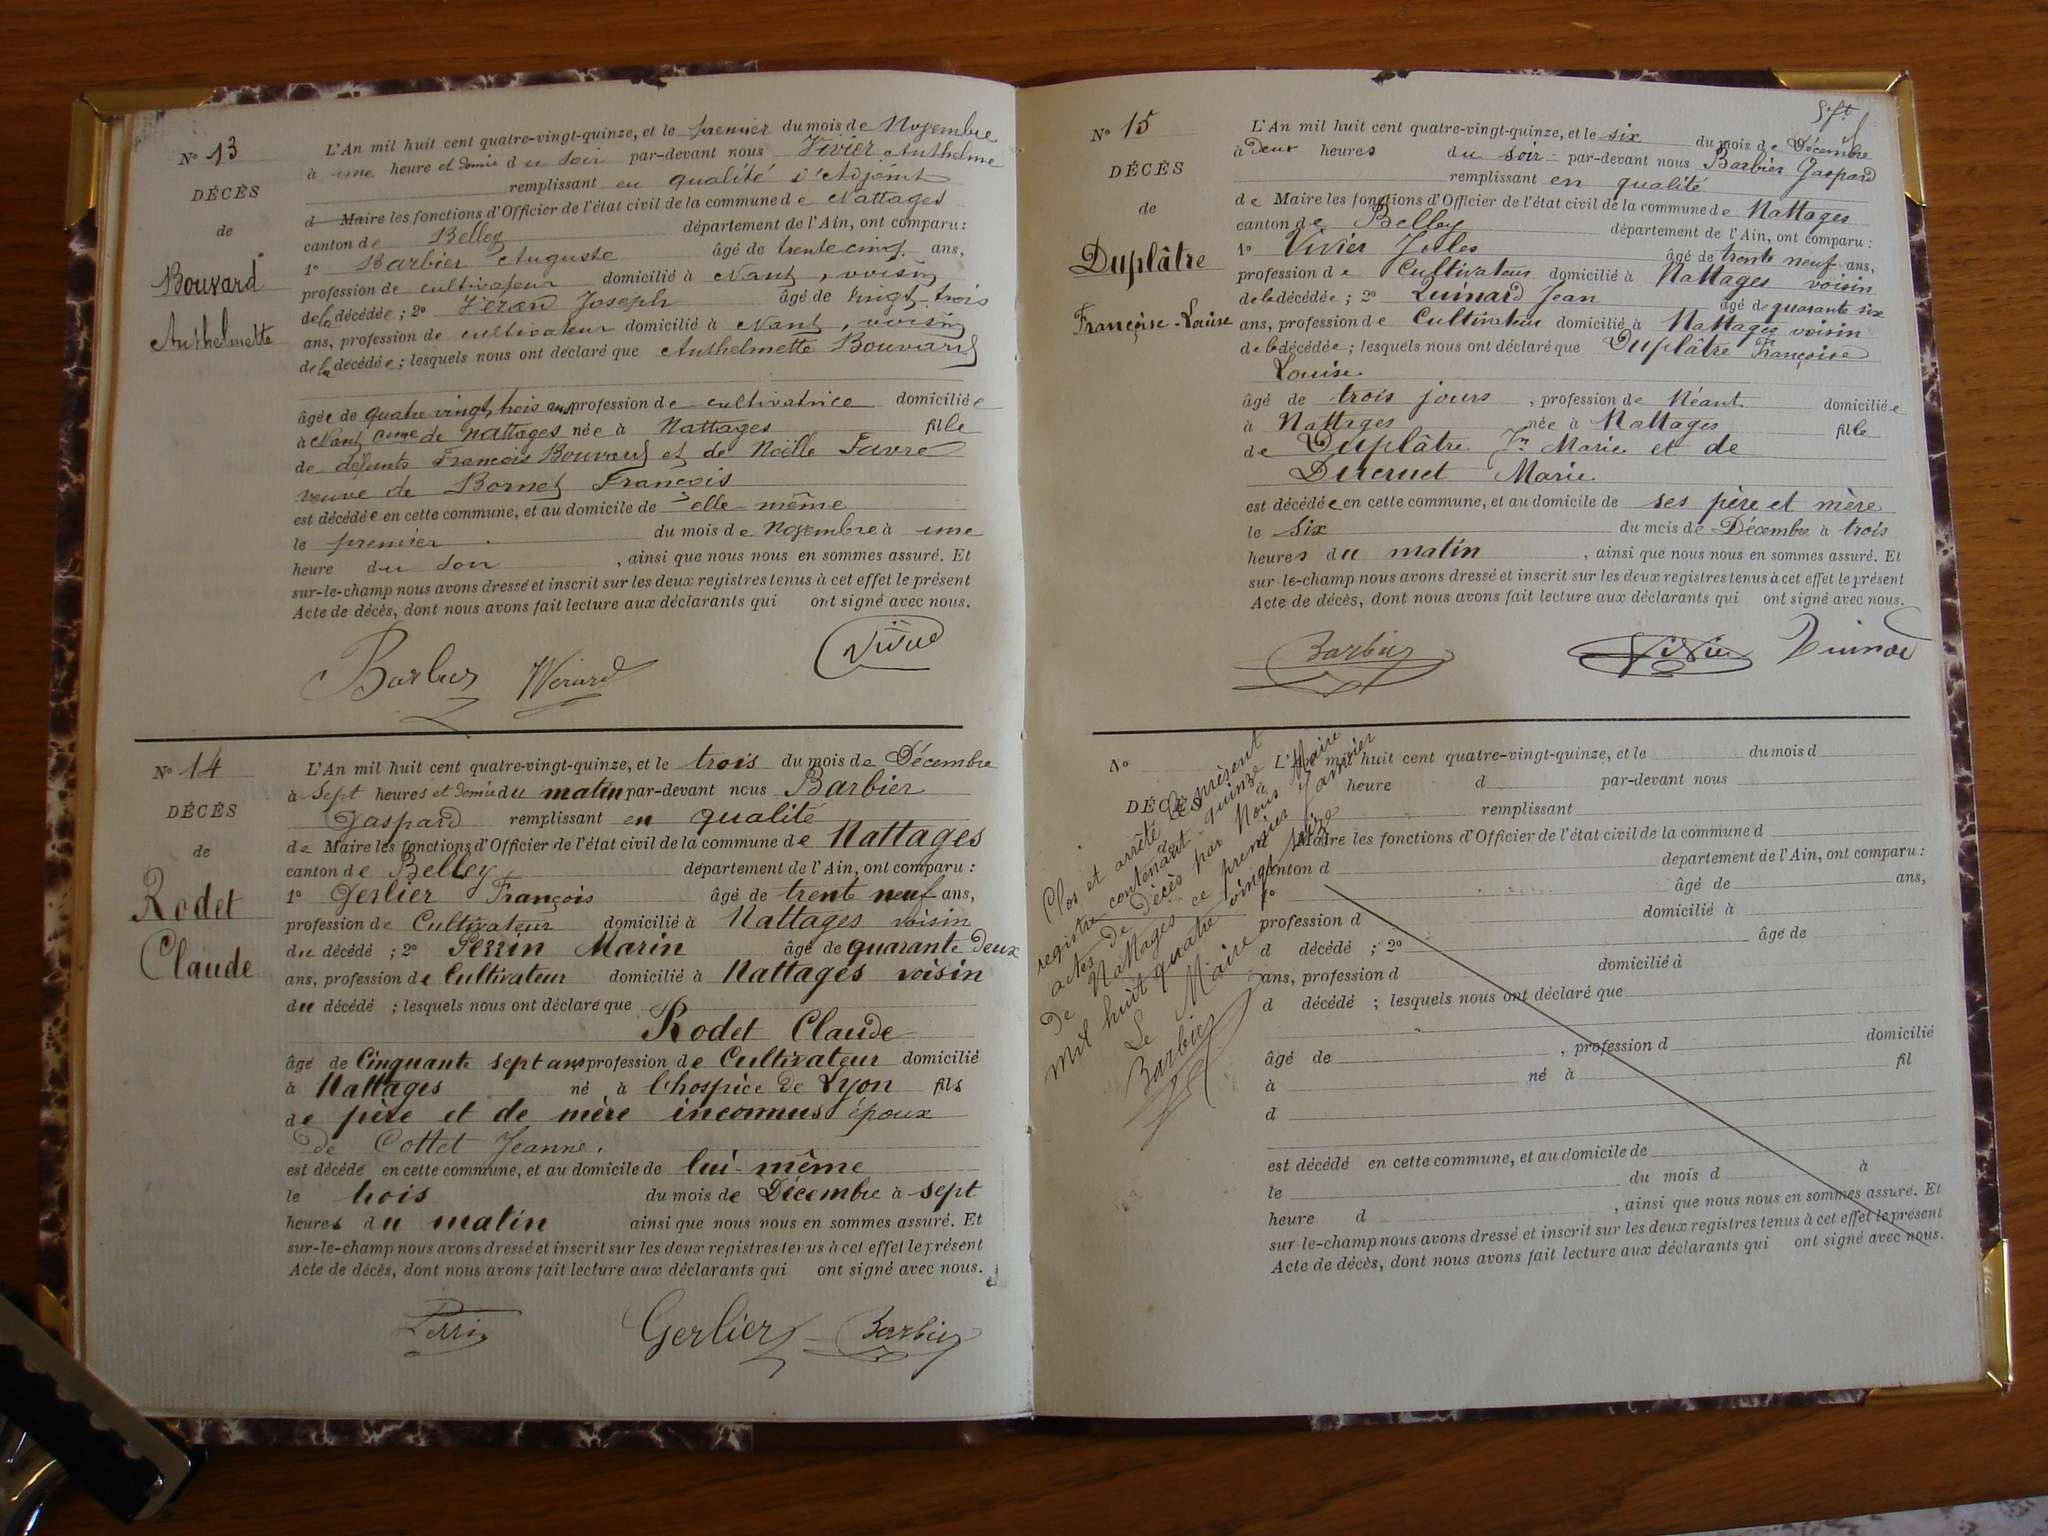 Nº 13
DÉCÈS
de
Bouvard
Anthelmette
L'An mil huit cent quatre-vingt-quinze, et le premier du mois de Novembre
à une heure et demie du soir par-devant nous Vivier Anthelme
remplissant en qualité d'Adjoint
d Maire les fonctions d'Officier de l'état civil de la commune de Nattages
canton de Belley département de l'Ain, ont comparu :
1º Barbier Auguste âgé de trente cinq ans,
profession de cultivateur domicilié à Nant, voisin
de la décédée ; 2º Joseph âgé de vingt-trois
ans, profession de cultivateur domicilié à Nant, voisin
de la décédée ; lesquels nous ont déclaré que Anthelmette Bouvard
âgée de quatre vingt trois ans profession de cultivatrice domiciliée
à Nant cune de Nattages née à Nattages fille
de défunts François Bouvard et de Noëlle Favre
veuve de Bornet François
est décédée en cette commune, et au domicile de elle-même
le premier du mois de Novembre à une
heure du soir, ainsi que nous nous en sommes assuré. Et
sur-le-champ nous avons dressé et inscrit sur les deux registres tenus à cet effet le présent
Acte de décès, dont nous avons fait lecture aux déclarants qui ont signé avec nous.
Barbier Vivier
Nº 14
DÉCÈS
de
Rodet
Claude
L'An mil huit cent quatre-vingt-quinze, et le trois du mois de Décembre
à Sept heures et demie du matin par-devant nous Barbier
Gaspard remplissant en qualité
de Maire les fonctions d'Officier de l'état civil de la commune de Nattages
canton de Belley département de l'Ain, ont comparu :
1º Gerlier François âgé de trente neuf ans,
profession de Cultivateur domicilié à Nattages voisin
du décédé ; 2º Perrin Marin âgé de quarante deux
ans, profession de Cultivateur domicilié à Nattages voisin
du décédé ; lesquels nous ont déclaré que
Rodet Claude
âgé de Cinquante sept ans profession de Cultivateur domicilié
à Nattages né à l'hospice de Lyon fils
de père et de mère inconnus époux
de Cottet Jeanne.
est décédé en cette commune, et au domicile de lui-même
le trois du mois de Décembre à sept
heures du matin ainsi que nous nous en sommes assuré. Et
sur-le-champ nous avons dressé et inscrit sur les deux registres tenus à cet effet le présent
Acte de décès, dont nous avons fait lecture aux déclarants qui ont signé avec nous.
Perrin Gerlier Barbier
Sept
Nº 15
DÉCÈS
de
Duplâtre
Françoise-Louise
L'An mil huit cent quatre-vingt-quinze, et le six du mois de Décembre
à Deux heures du soir par-devant nous Barbier Gaspard
remplissant en qualité
de Maire les fonctions d'Officier de l'état civil de la commune de Nattages
canton de Belley département de l'Ain, ont comparu :
1º Vivier Jules âgé de trente neuf ans,
profession de Cultivateur domicilié à Nattages voisin
de la décédée ; 2º Quinard Jean âgé de quarante six
ans, profession de Cultivateur domicilié à Nattages voisin
de la décédée ; lesquels nous ont déclaré que Duplâtre Françoise
Louise
âgé de trois jours, profession de Néant domiciliée
à Nattages née à Nattages fille
de Duplâtre Marie et de
Ducruet Marie
est décédée en cette commune, et au domicile de ses père et mère
le six du mois de Décembre à trois
heures du matin, ainsi que nous nous en sommes assuré. Et
sur-le-champ nous avons dressé et inscrit sur les deux registres tenus à cet effet le présent
Acte de décès, dont nous avons fait lecture aux déclarants qui ont signé avec nous.
Barbier Vivier Quinard
Nº
DÉCÈS
Clos et arrêté le présent
registre contenant quinze
actes de Décès par Nous Maire
de Nattages ce premier Janvier
mil huit quatre vingt seize
Le Maire
Barbier
L'An mil huit cent quatre-vingt-quinze, et le du mois d
heure d par-devant nous
remplissant
Maire les fonctions d'Officier de l'état civil de la commune d
canton d département de l'Ain, ont comparu :
1º âgé de ans,
profession d domicilié à
d décédé ; 2º âgé de
ans, profession d domicilié à
d décédé ; lesquels nous ont déclaré que
âgé de , profession d domicilié
à né à fil
d
est décédé en cette commune, et au domicile de
le du mois d à
heure d , ainsi que nous nous en sommes assuré. Et
sur-le-champ nous avons dressé et inscrit sur les deux registres tenus à cet effet le présent
Acte de décès, dont nous avons fait lecture aux déclarants qui ont signé avec nous.